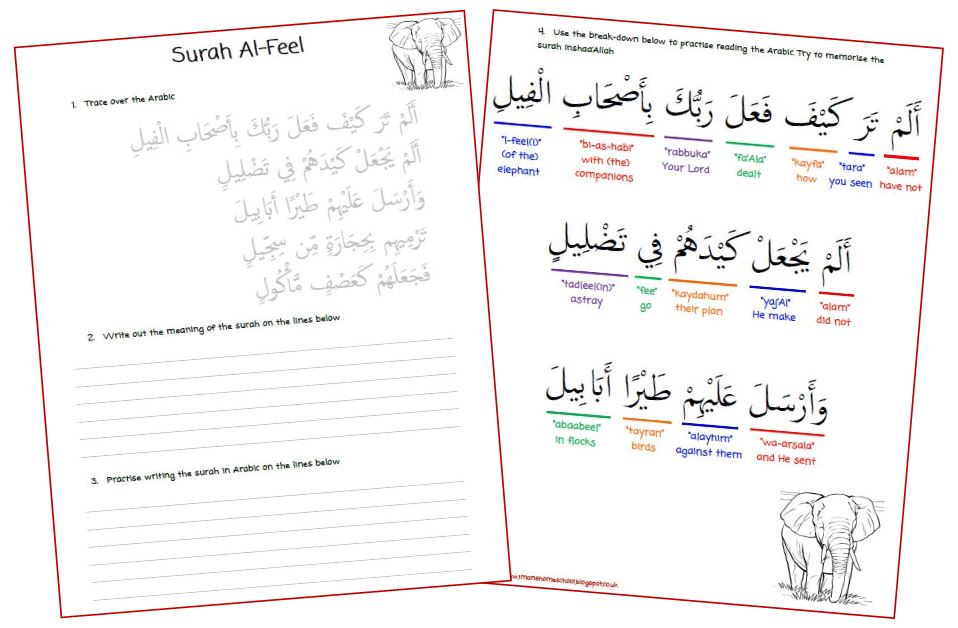 Surah Al-Feel
1. Trace over the Arabic
أَلَمْ تَرَ كَيْفَ فَعَلَ رَبُّكَ بِأَصْحَابِ الْفِيلِ
أَلَمْ يَجْعَلْ كَيْدَهُمْ فِي تَضْلِيلٍ
وَأَرْسَلَ عَلَيْهِمْ طَيْرًا أَبَابِيلَ
تَرْمِيهِم بِحِجَارَةٍ مِّن سِجِّيلٍ
فَجَعَلَهُمْ كَعَصْفٍ مَّأْكُولٍ
2. Write out the meaning of the surah on the lines below
3. Practise writing the surah in Arabic on the lines below
4. Use the break-down below to practise reading the Arabic. Try to memorise the
surah inshaa'Allah
أَلَمْ تَرَ كَيْفَ فَعَلَ رَبُّكَ بِأَصْحَابِ الْفِيلِ
"alam" "tara" "kayfa" "fa'Ala" "rabbuka" "bi-as-habi" "l-feel(i)"
have not you seen how dealt Your Lord with (the) (of the)
companions elephant
أَلَمْ يَجْعَلْ كَيْدَهُمْ فِي تَضْلِيلٍ
"alam" "yajAl" "kaydahum" "fee" "tadleel(in)"
did not He make their plan go astray
وَأَرْسَلَ عَلَيْهِمْ طَيْرًا أَبَابِيلَ
"wa-arsala" "alayhim" "tayran" "abaabeel"
and He sent against them birds in flocks
imanshomeschool.blogspot.co.uk